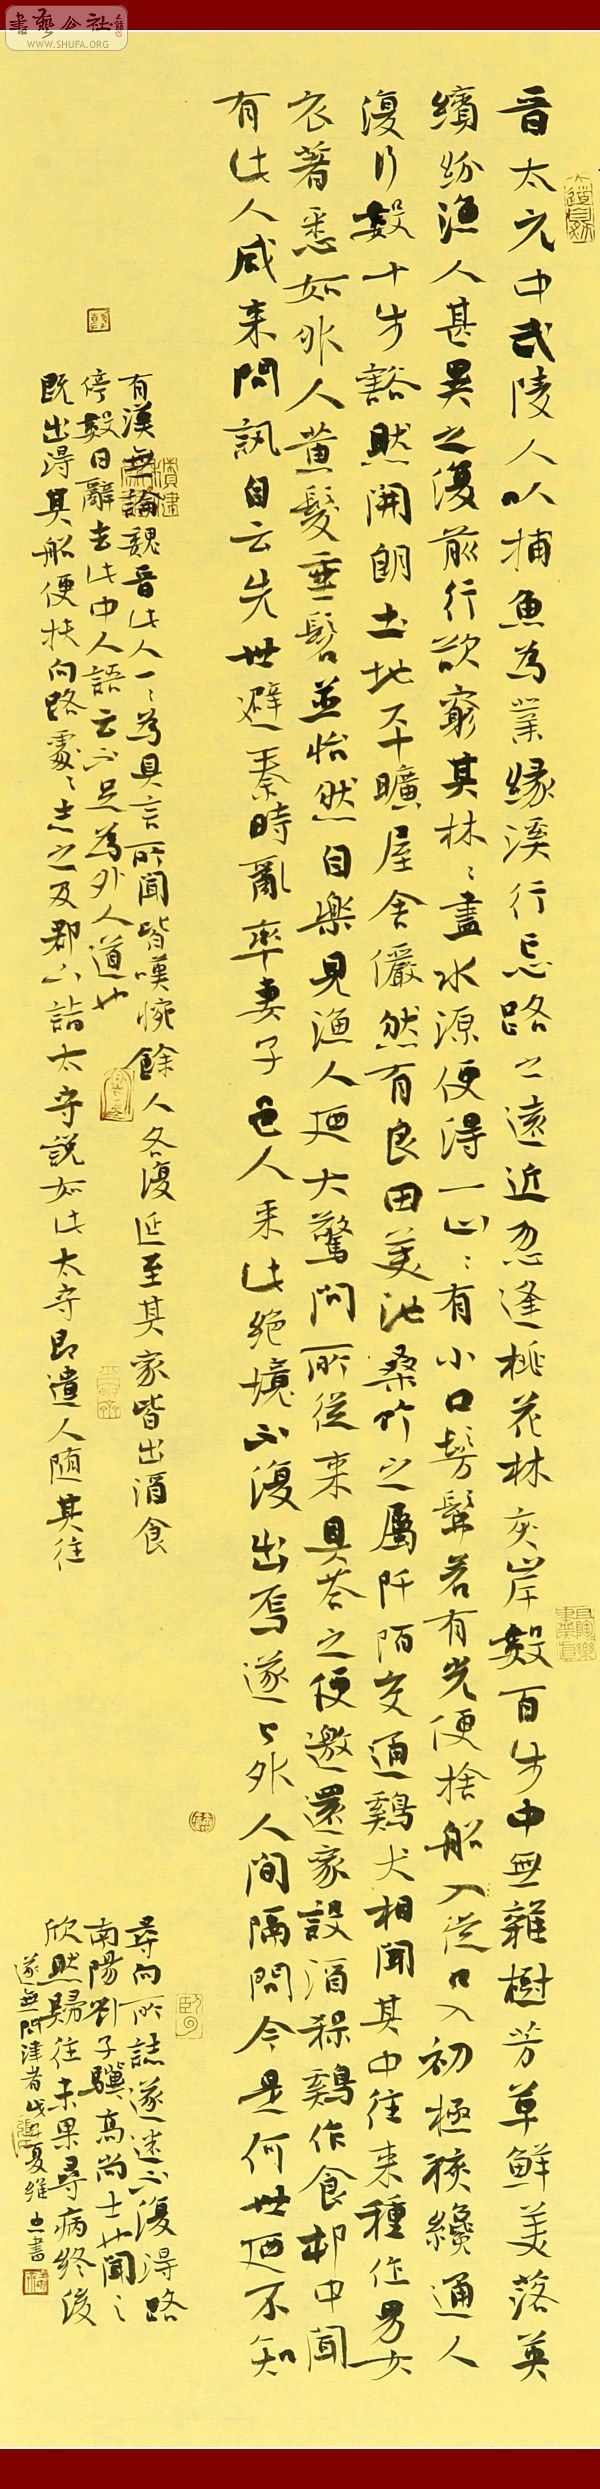 書藝公社
WWW.SHUFA.ORG
晉太元中武陵人以捕魚為業緣溪行忘路之遠近忽逢桃花林夾岸數百步中無雜樹芳草鮮美落英
繽紛漁人甚異之復前行欲窮其林〻盡水源便得一山〻有小口髣髴若有光便捨船入從口入初極狹纔通人
復行數十步豁然開朗土地平曠屋舍儼然有良田美池桑竹之屬阡陌交通鷄犬相聞其中往來種作男女
衣著悉如外人黃髮垂髫並怡然自樂見漁人迺大驚問所從來具荅之便邀還家設酒殺鷄作食邨中聞
有此人咸來問訊自云先世避秦時亂率妻子邑人來此絕境不復出焉遂與外人間隔問今是何世迺不知
有漢無論魏晉此人一〻為具言所聞皆嘆惋餘人各復延至其家皆出酒食
停數日辭去此中人語云不足為外人道也
既出得其船便扶向路處〻志之及郡下詣太守說如此太守即遣人隨其往
尋向所誌遂迷不復得路
南陽劉子驥高尚士也聞之
欣然歸往未果尋病終後
遂無問津者 夏維 書